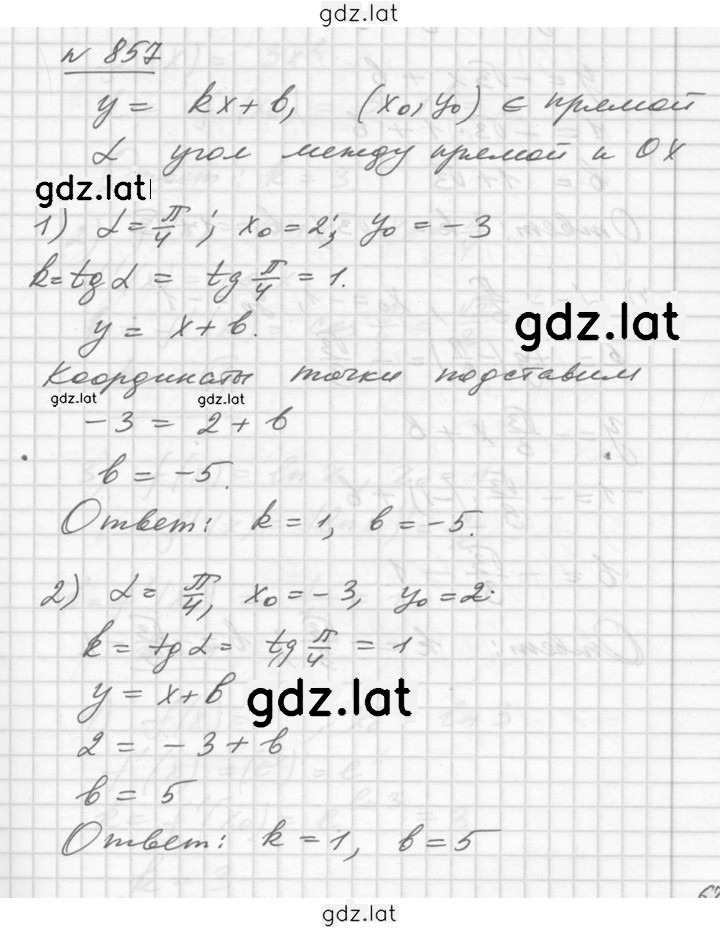 gdz.lat
№ 857
y = kx + b, (x₀, y₀) ∈ прямой
α угол между прямой и OX
gdz.lat
1) α = π/4; x₀ = 2; y₀ = -3
k = tg α = tg π/4 = 1.
y = x + b.
gdz.lat
Координаты точки подставим
gdz.lat gdz.lat
-3 = 2 + b
b = -5.
Ответ: k = 1, b = -5.
2) α = π/4, x₀ = -3, y₀ = 2.
k = tg α = tg π/4 = 1
y = x + b
gdz.lat
2 = -3 + b
b = 5
Ответ: k = 1, b = 5
gdz.lat